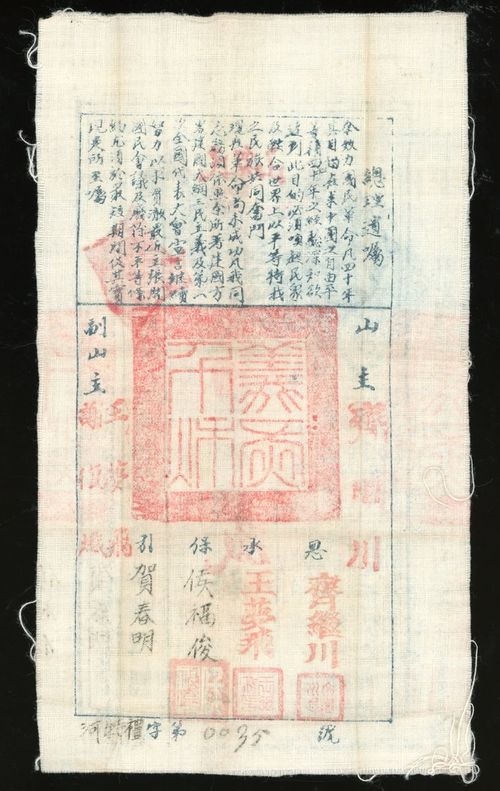 總理遺囑
余致力國民革命凡四十年
其目的在求中國之自由平
等積四十年之經驗深知欲
達到此目的必須喚起民衆
及聯合世界上以平等待我
之民族共同奮鬥
現在革命尚未成功凡我同
志務須依照余所著建國方
畧建國大綱三民主義及第一
次全國代表大會宣言繼續
努力以求貫澈最近主張開
國民會議及廢除不平等條
約尤須於最短期間促其實
現是所至囑
山主 齊繼川
副山主
王夢飛
恩 齊繼川
承 王夢飛
保 侯福俊
引 賀春明
河 禮字第0035號